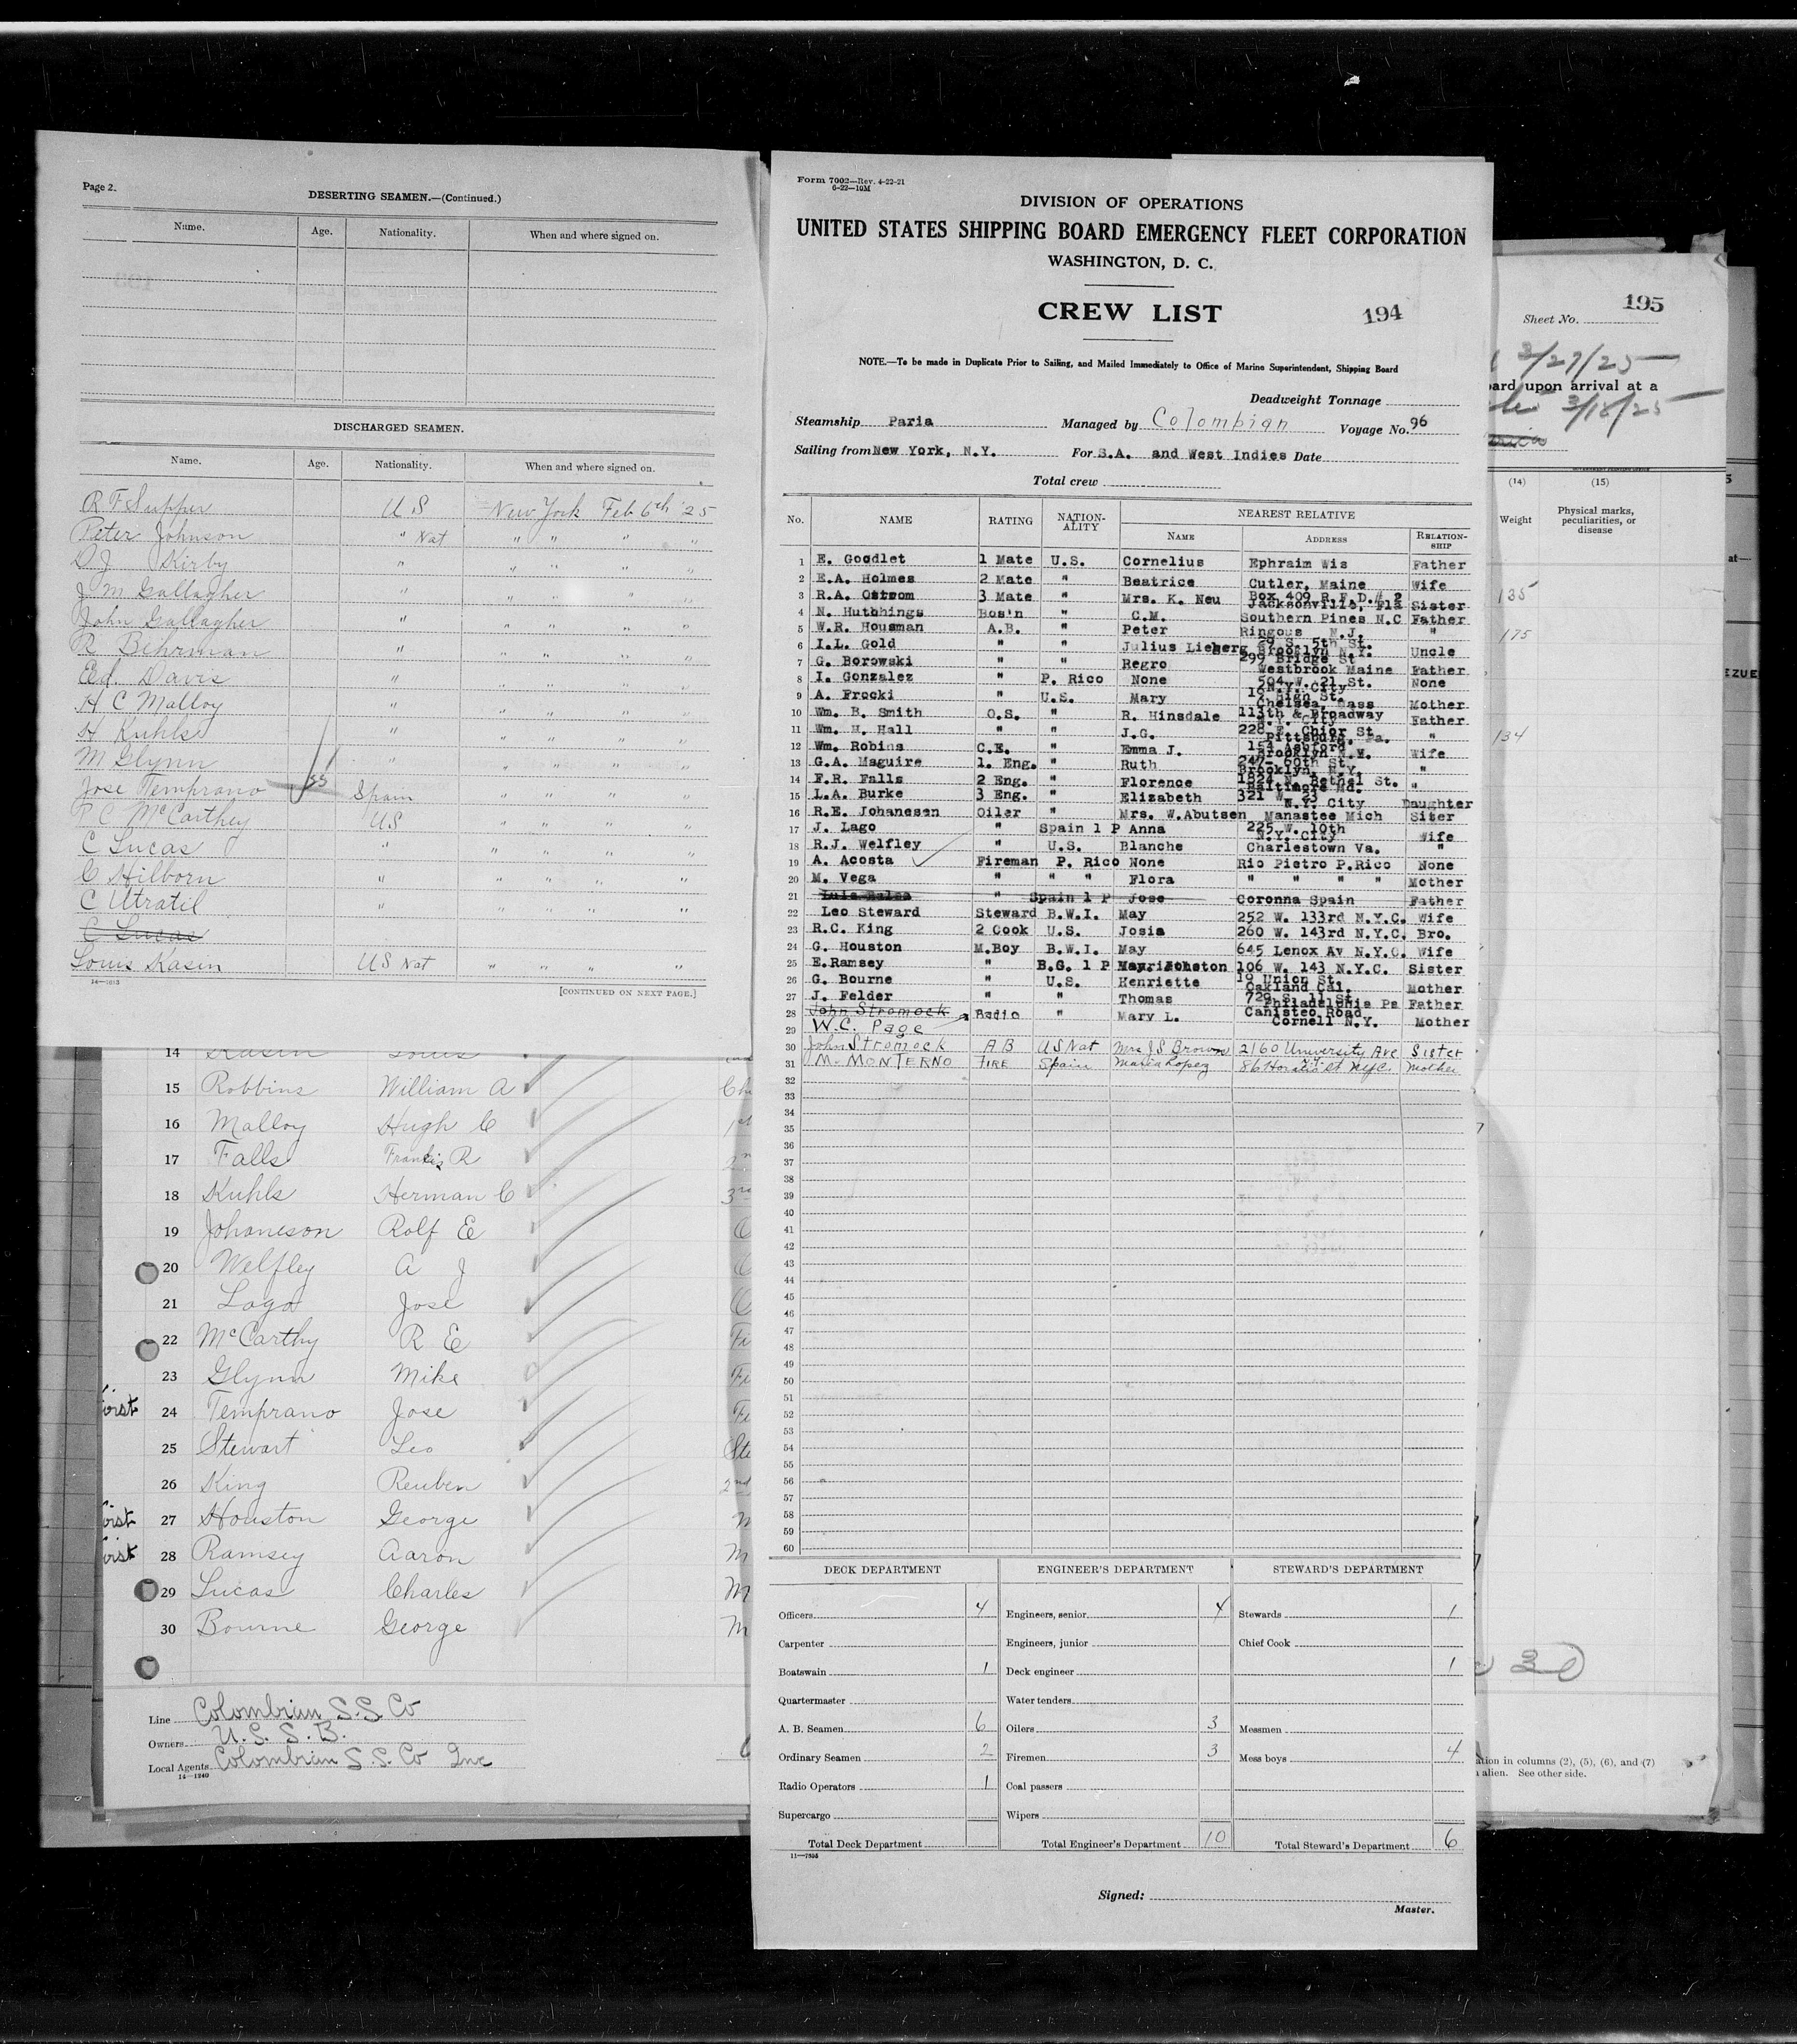 Page 2.
DESERTING SEAMEN.—(Continued.)
Name. Age. Nationality. When and where signed on.
DISCHARGED SEAMEN.
Name. Age. Nationality. When and where signed on.
R F Supper U S New York Feb 6th '25
Peter Johnson " Nat " " " "
D J Kirby " " " " "
J M Gallagher " " " " "
John Gallagher " " " " "
R Behrman " " " " "
Ed. Davis " " " " "
H C Malloy " " " " "
H Kuhls " " " " "
M Glynn " " " " "
Jose Temprano 33 Spain " " " "
R C McCarthey US " " " "
C Lucas " " " " "
C Hilborn " " " " "
C Utratil " " " " "
C Lucas
Louis Kasin US Nat " " " "
14—1213
[CONTINUED ON NEXT PAGE.]
14 Kasin Louis
15 Robbins William A
16 Malloy Hugh C
17 Falls Francis R
18 Kuhls Herman C
19 Johaneson Rolf E
20 Welfley A J
21 Lago Jose
22 McCarthy R E
23 Glynn Mike
24 Temprano Jose
25 Stewart Leo
26 King Reuben
27 Houston George
28 Ramsey Aaron
29 Lucas Charles
30 Bourne George
Line Colombian S.S. Co
Owners U. S. S. B.
Local Agents Colombian S.S. Co Inc
14—1240
Form 7002—Rev. 4-22-21
6-22—10M
DIVISION OF OPERATIONS
UNITED STATES SHIPPING BOARD EMERGENCY FLEET CORPORATION
WASHINGTON, D. C.
CREW LIST 194
NOTE.—To be made in Duplicate Prior to Sailing, and Mailed Immediately to Office of Marine Superintendent, Shipping Board
Deadweight Tonnage
Steamship Paria Managed by Colombian Voyage No. 96
Sailing from New York, N.Y. For S.A. and West Indies Date
Total crew
No. NAME RATING NATION-ALITY NEAREST RELATIVE
NAME ADDRESS RELATION-SHIP
1 E. Goodlet 1 Mate U.S. Cornelius Ephraim Wis Father
2 E.A. Holmes 2 Mate " Beatrice Cutler, Maine Wife
3 R.A. Ostrom 3 Mate " Mrs. K. Neu Box 409 R.F.D.# 2 Jacksonville, Fla Sister
4 N. Huthhings Bos'n " C.M. Southern Pines N.C Father
5 W.R. Housman A.B. " Peter Ringous N.J. "
6 I.L. Gold " " Julius Lieberg 29 S. 5th St. Brooklyn N.Y. Uncle
7 G. Borowski " " Regro 299 Bridge St Westbrook Maine Father
8 I. Gonzalez " P. Rico None 504 W. 21 St. N.Y. City None
9 A. Frocki " U.S. Mary 12 High St. Chelsea, Mass Mother
10 Wm. B. Smith O.S. " R. Hinsdale 113th & Broadway N.Y. City Father
11 Wm. H. Hall " " J.G. 228 E. Chior St Pittsburg, Pa. "
12 Wm. Robins C.E. " Emma J. 154 Ashford Brooklyn N.Y. Wife
13 G.A. Maguire 1. Eng. " Ruth 247- 60th St. Brooklyn, N.Y. "
14 F.R. Falls 2 Eng. " Florence 1824 N. Bethel St. Baltimore Md. "
15 L.A. Burke 3 Eng. " Elizabeth 321 W. 23 N.Y. City Daughter
16 R.E. Johanesen Oiler " Mrs. W.Abutsen Manastee Mich Siter
17 J. Lago " Spain 1 P Anna 225 W. 10th N.Y. City Wife
18 R.J. Welfley " U.S. Blanche Charlestown Va. "
19 A. Acosta Fireman P. Rico None Rio Pietro P.Rico None
20 M. Vega " " " Flora " " " " Mother
21 " Spain 1 P Jose Coronna Spain Father
22 Leo Steward Steward B.W.I. May 252 W. 133rd N.Y.C. Wife
23 R.C. King 2 Cook U.S. Josia 260 W. 143rd N.Y.C. Bro.
24 G. Houston M.Boy B.W.I. May 645 Lenox Av N.Y.C. Wife
25 E.Ramsey " B.G. 1 P 106 W. 143 N.Y.C. Sister
26 G. Bourne " U.S. Henriette 19 Union St. Oakland Cal. Mother
27 J. Felder " " Thomas 729 S. 11 St. Philadelphia Pa Father
28 John Stromock Radio " Mary L. Canisteo Road Cornell N.Y. Mother
29 W.C. Page
30 John Stromock A B US Nat Mrs J S Brown 2160 University Ave Sister
31 M. MONTERNO FIRE Spain Maria Lopez 86 Horatio St NYC. Mother
32
33
34
35
36
37
38
39
40
41
42
43
44
45
46
47
48
49
50
51
52
53
54
55
56
57
58
59
60
DECK DEPARTMENT ENGINEER'S DEPARTMENT STEWARD'S DEPARTMENT
Officers 4 Engineers, senior 4 Stewards 1
Carpenter Engineers, junior Chief Cook
Boatswain 1 Deck engineer 1
Quartermaster Water tenders
A. B. Seamen 6 Oilers 3 Messmen
Ordinary Seamen 2 Firemen 3 Mess boys 4
Radio Operators 1 Coal passers
Supercargo Wipers
Total Deck Department Total Engineer's Department 10 Total Steward's Department 6
Signed:
Master.
195
Sheet No.
3/27/25
ard upon arrival at a
3/18/25
(14) (15)
Weight Physical marks, peculiarities, or disease
135
175
134
30
ation in columns (2), (5), (6), and (7)
alien. See other side.